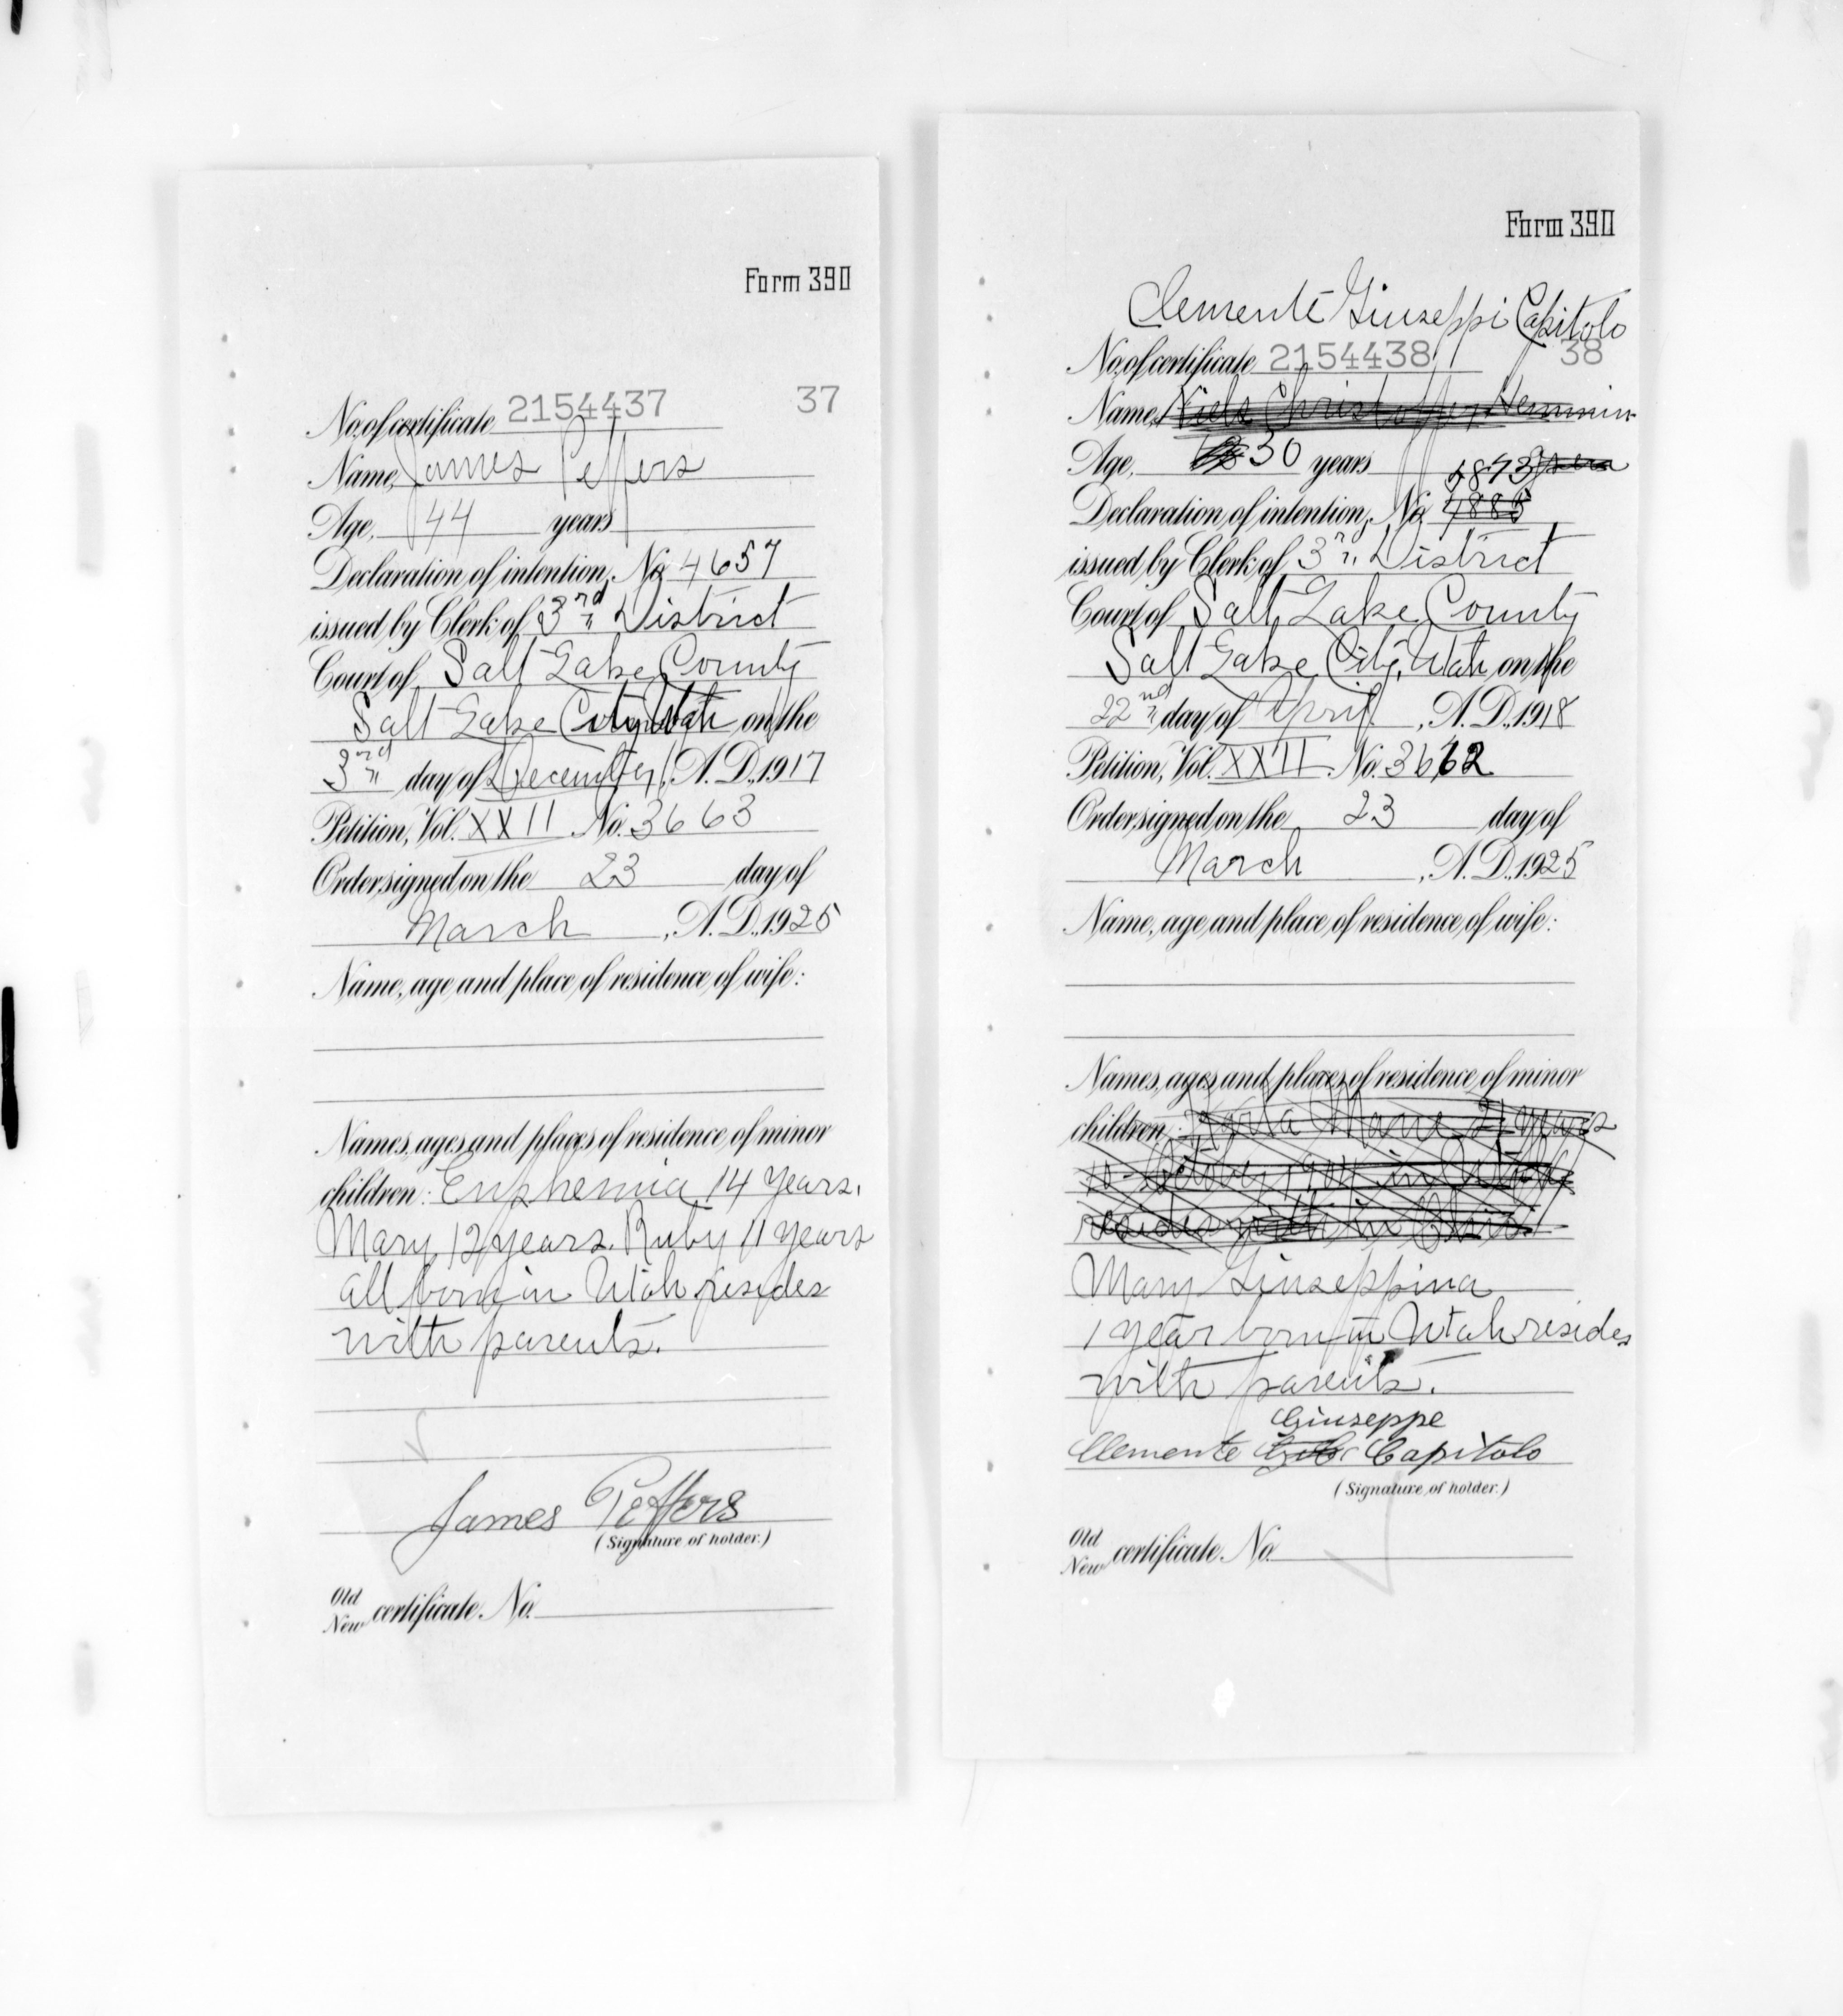 Form 390
No. of certificate 2154437 37
Name, James Peffers
Age, 44 years
Declaration of intention, No. 4657
issued by Clerk of 3rd District
Court of Salt Lake County
Salt Lake City, Utah on the
3rd day of December, A.D., 1917
Petition, Vol. XXII No. 3663
Order signed on the 23 day of
March, A.D., 1925
Name, age and place of residence of wife:
Names, ages and places of residence of minor
children: Euphemia 14 years.
Mary, 12 years. Ruby 11 years
all born in Utah resides
with parents.
James Peffers
(Signature of holder.)
Old
New certificate No.
Form 390
Clemente Giuseppi Capitolo
No. of certificate 2154438 38
Name, Niels Christoffer Hemmin
Age, 30 years
4873
Declaration of intention, No. 4885
issued by Clerk of 3rd District
Court of Salt Lake County
Salt Lake City, Utah on the
22nd day of April, A.D., 1918
Petition, Vol. XXII No. 3662
Order signed on the 23 day of
March, A.D., 1925
Name, age and place of residence of wife:
Names, ages and places of residence of minor
children: Marie 21 years
10 October 1904 in
resides
Mary Giuseppina
1 year born in Utah resides
with parents.
Giuseppe
Clemente Capitolo
(Signature of holder.)
Old
New certificate No.